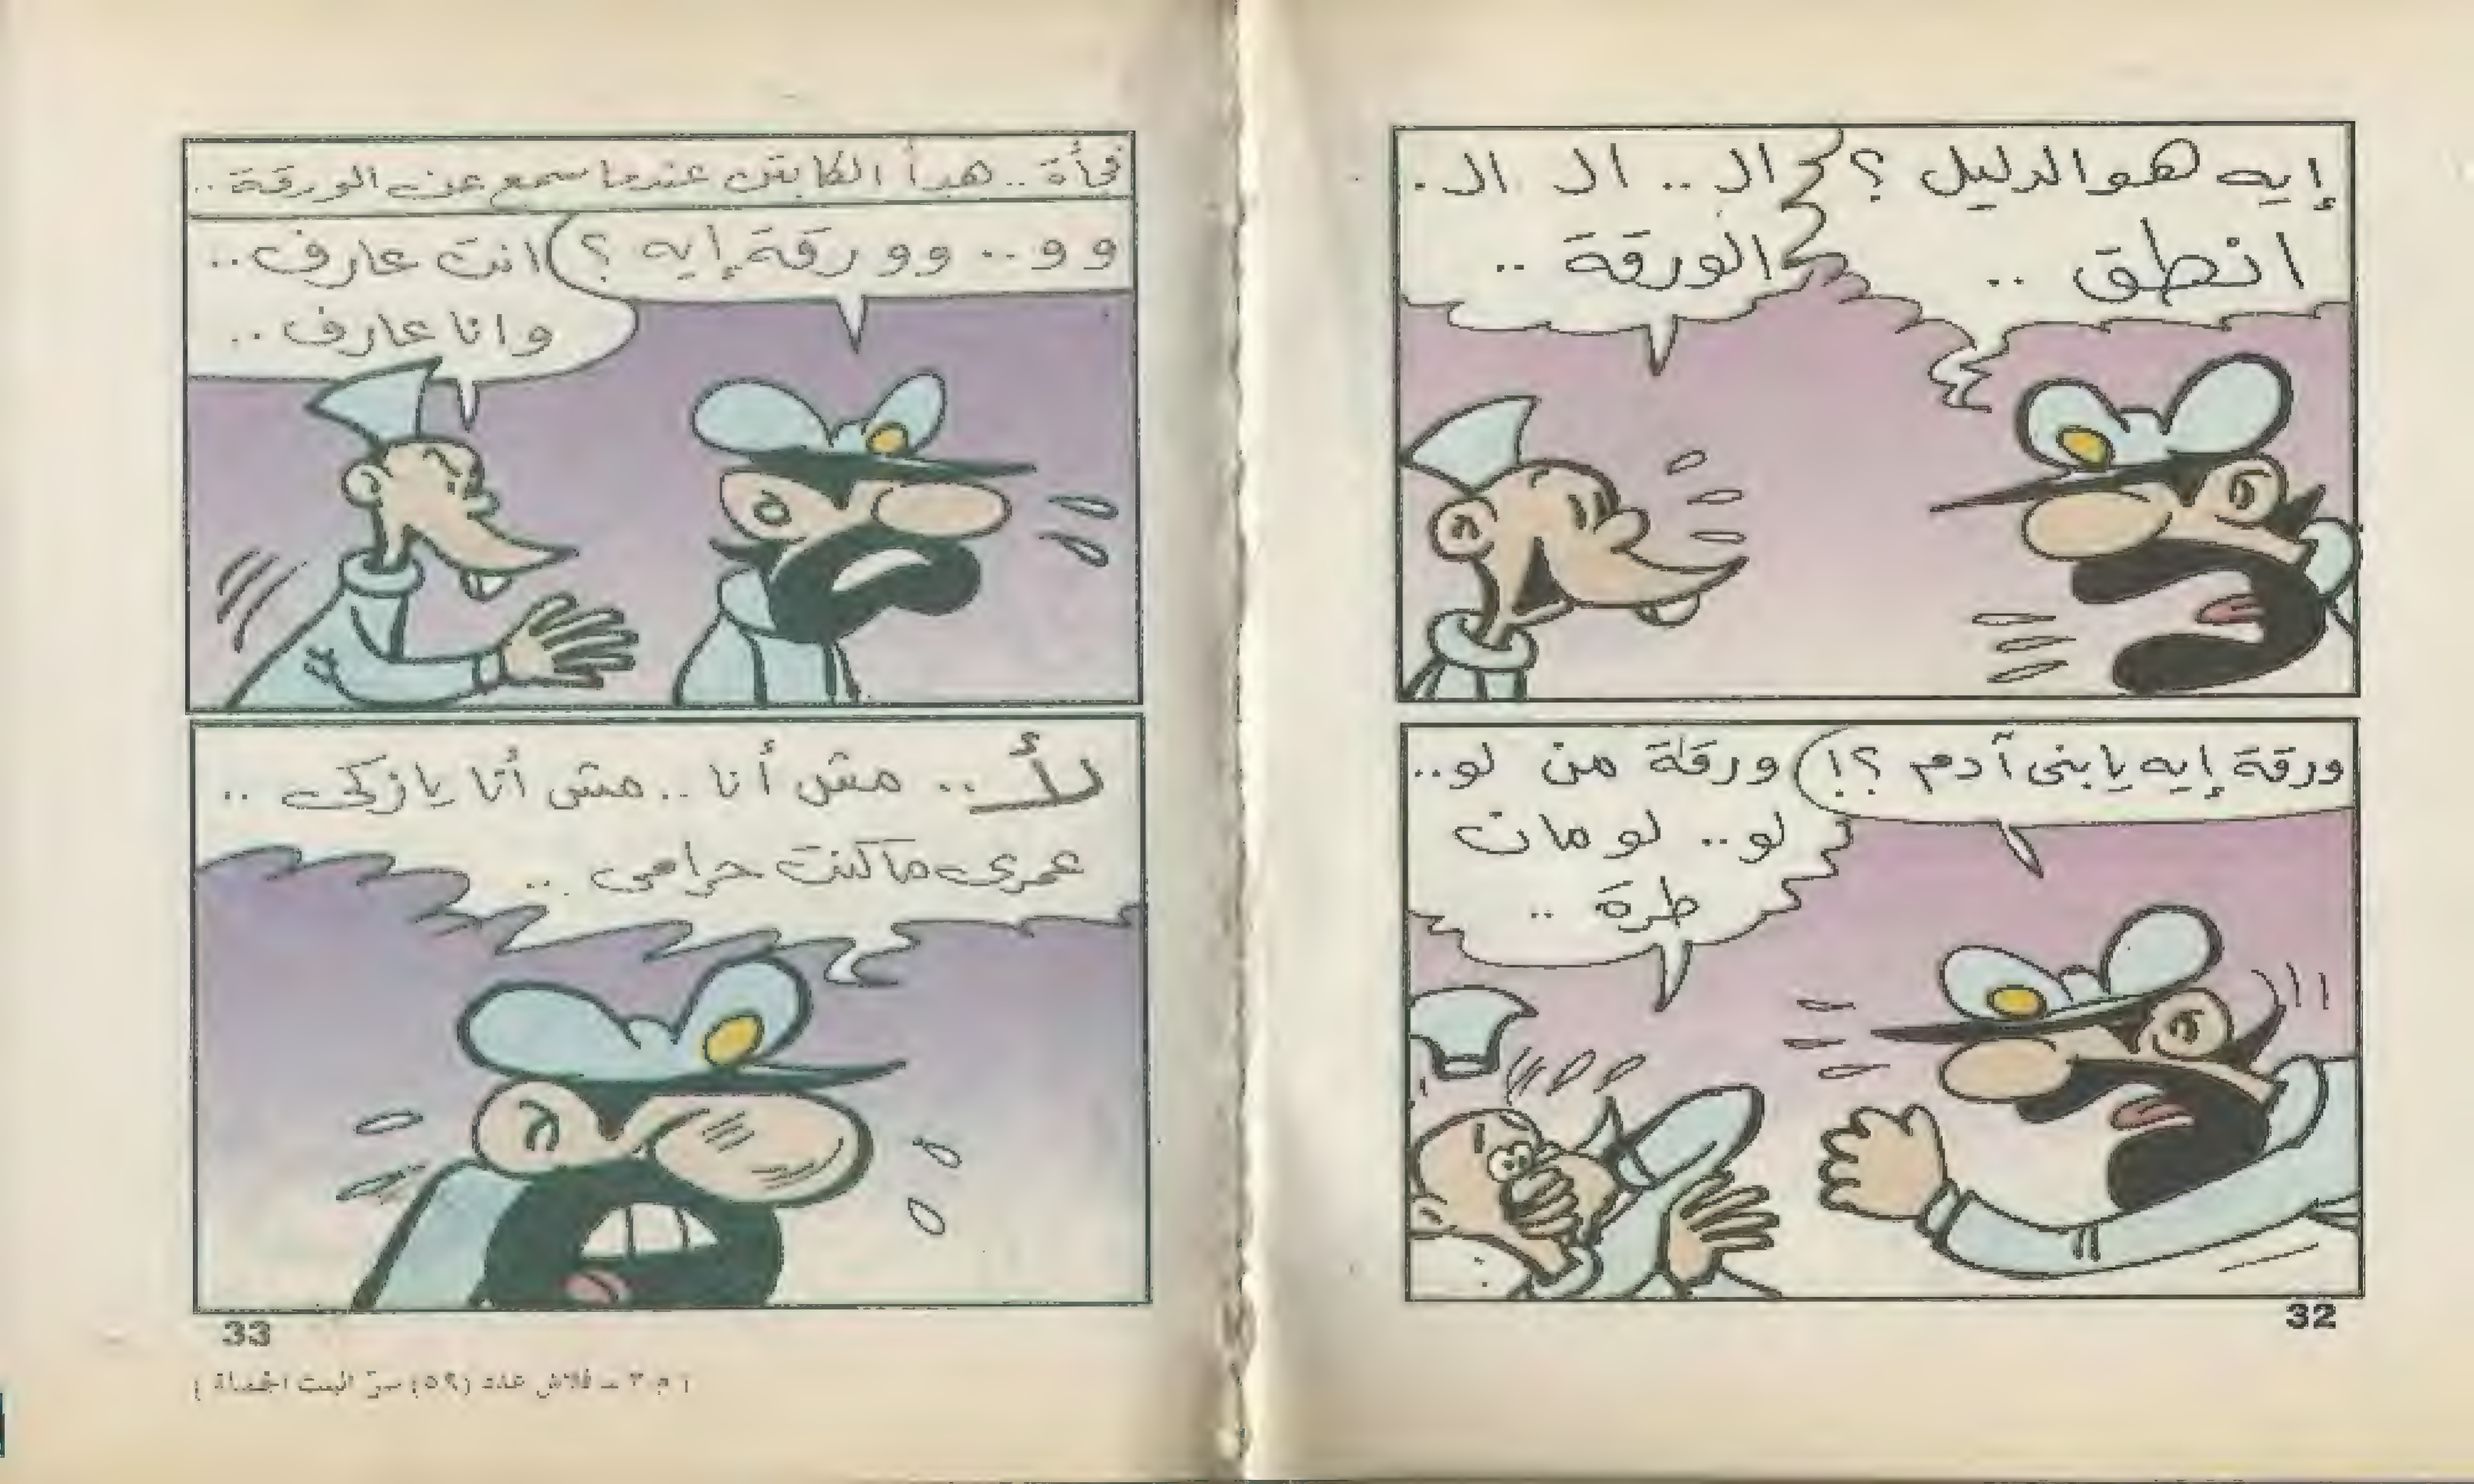 إيه هو الدليل ؟
انطق ..
ال .. ال ال .
الورقة ..
ورقة إيه يا بنى آدم ؟!
ورقة من لو ..
لو .. لو مات
طرة ..
32
فجأة .. هدأ الكابتن عندما سمع عن الورقة ..
وو .. وو رقة إيه ؟
انت عارف ..
وانا عارف ..
لأ .. مش أنا .. مش أنا يا زكى ..
عمرى ما كنت حرامى ..
33
( م ٣ ــ فلاش عدد (٥٩) سرّ البيت